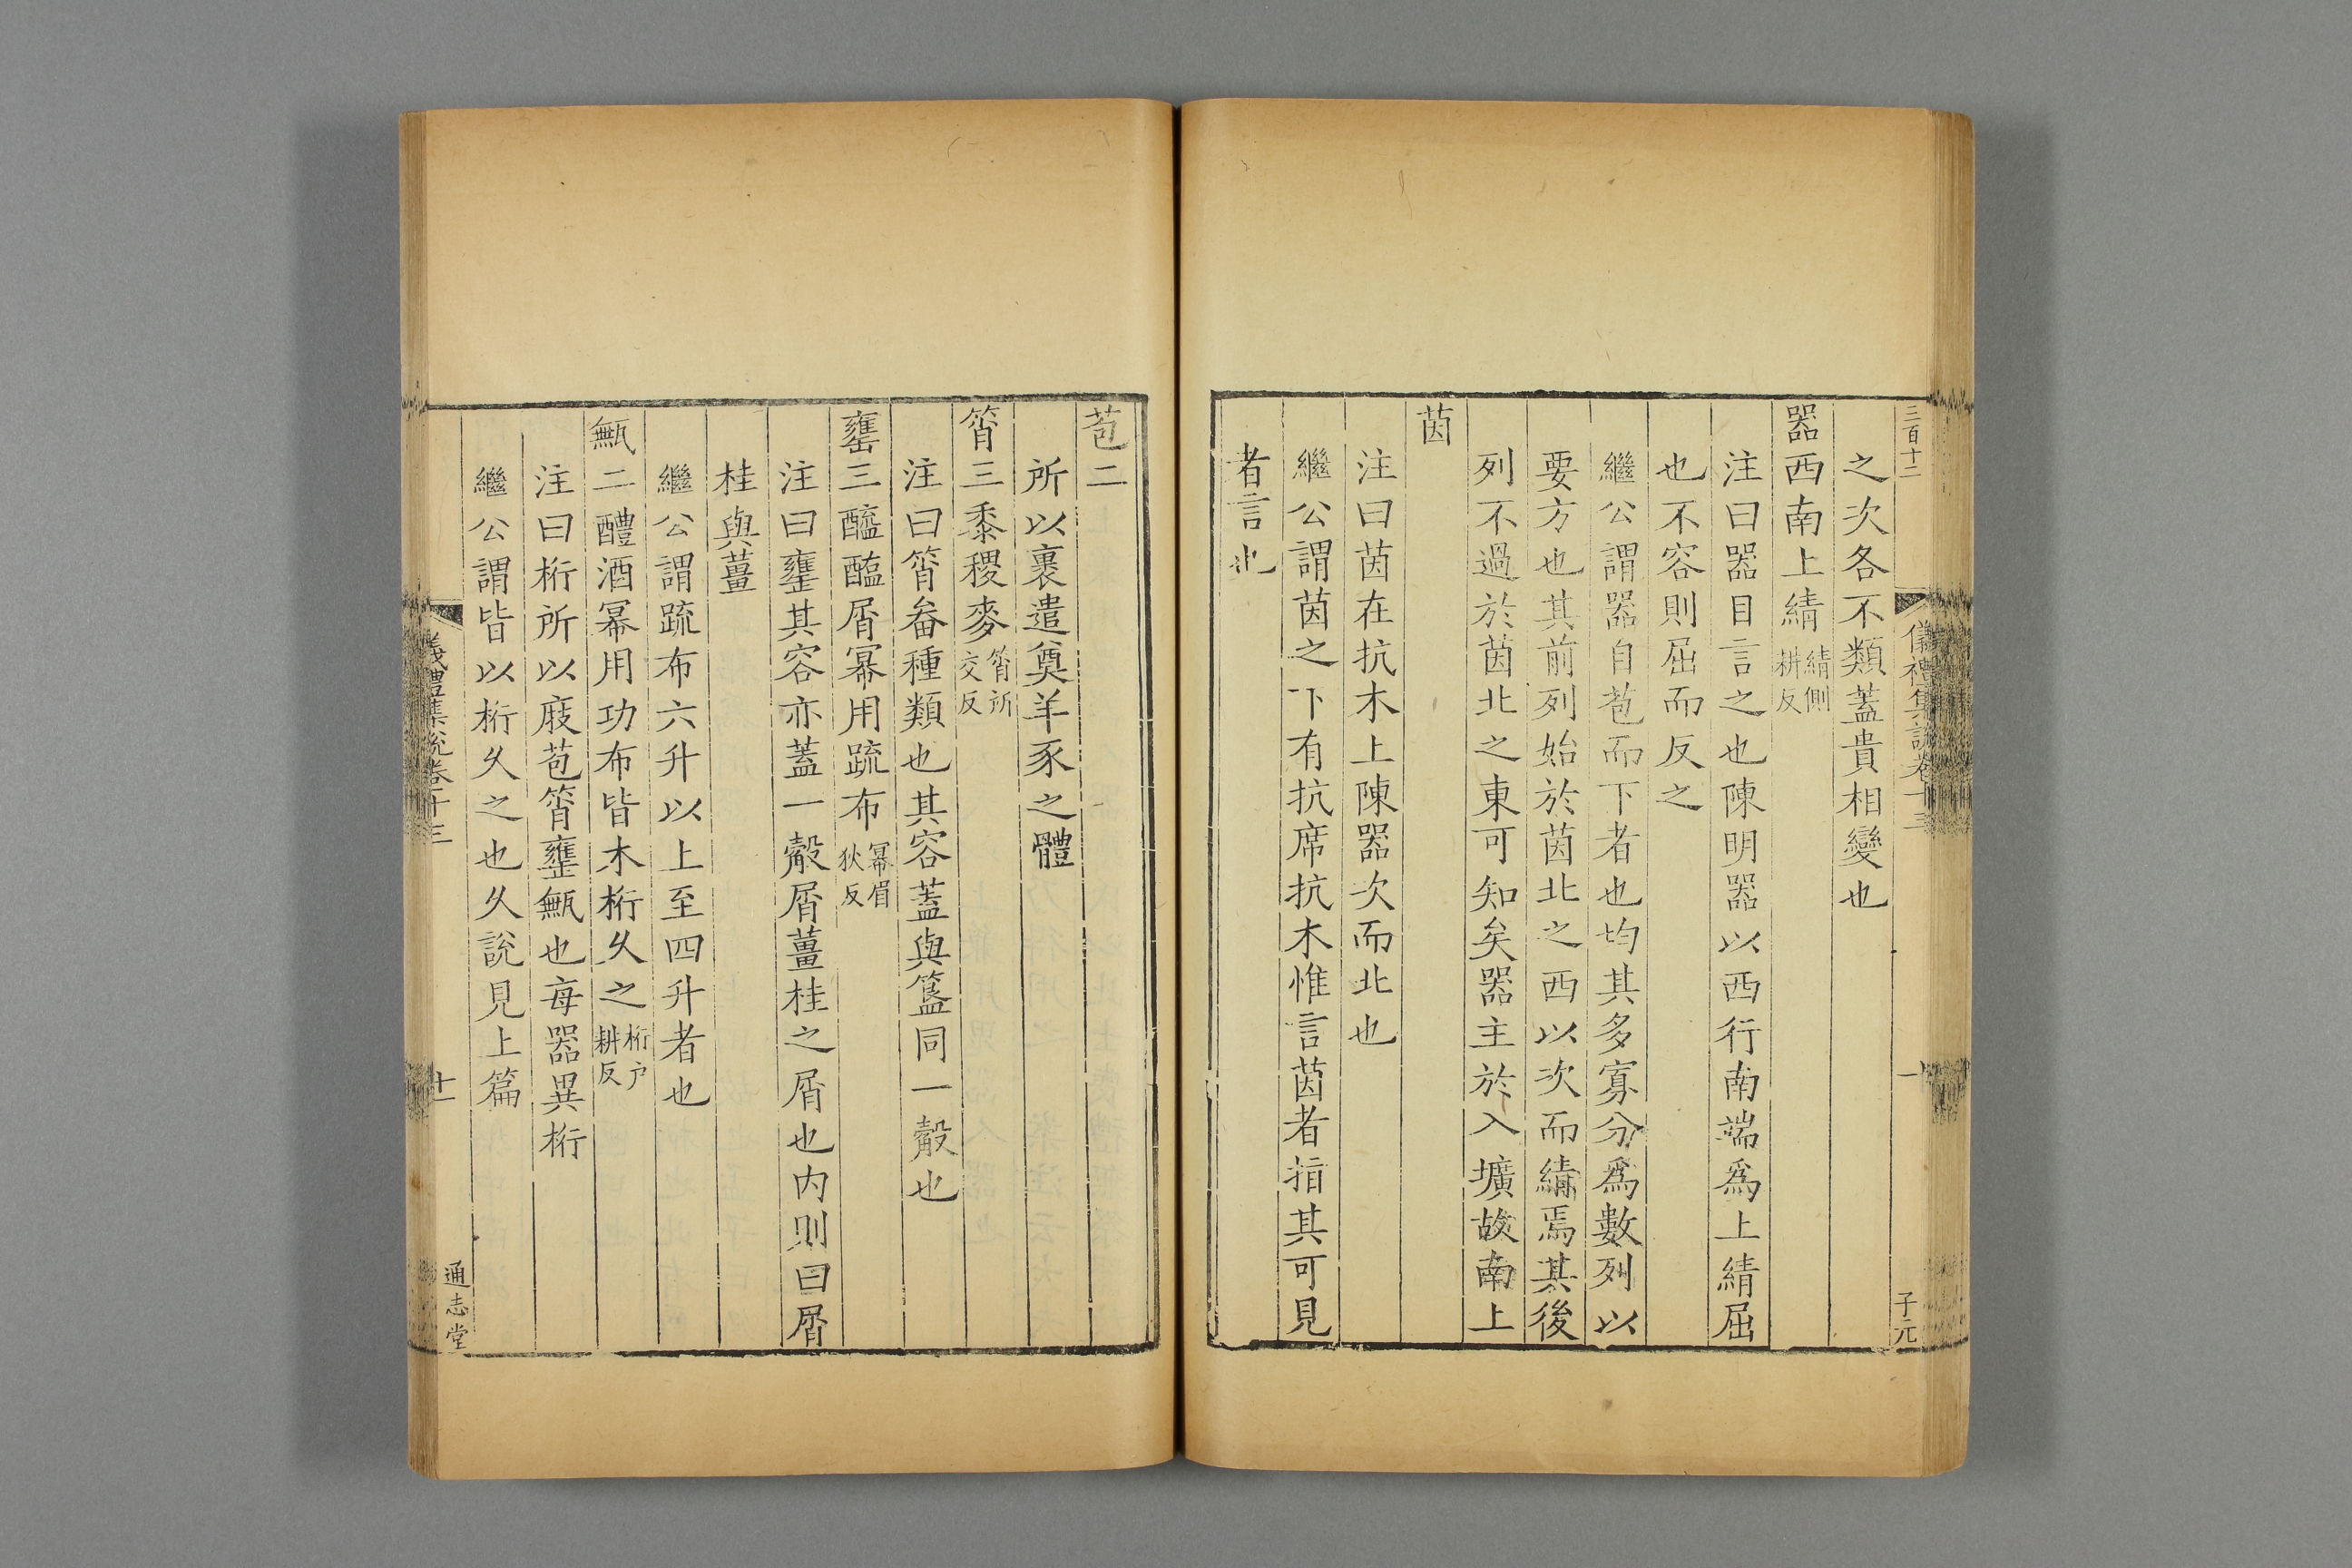 三百十二
儀禮集說卷十三
一
子元
之次各不類蓋貴相變也
器西南上綪綪側耕反
注曰器目言之也陳明器以西行南端爲上綪屈
也不容則屈而反之
繼公謂器自苞而下者也均其多寡分爲數列以
要方也其前列始於茵北之西以次而綪焉其後
列不過於茵北之東可知矣器主於入壙故南上
茵
注曰茵在抗木上陳器次而北也
繼公謂茵之下有抗席抗木惟言茵者指其可見
者言也
苞二
所以裹遣奠羊豕之體
筲三黍稷麥筲所交反
注曰筲畚種類也其容蓋與簋同一觳也
罋三醯醢屑冪用疏布冪眉狄反
注曰罋其容亦蓋一觳屑薑桂之屑也内則曰屑
桂與薑
繼公謂疏布六升以上至四升者也
甒二醴酒冪用功布皆木桁久之桁户耕反
注曰桁所以庪苞筲罋甒也每器異桁
繼公謂皆以桁久之也久說見上篇
儀禮集說卷十三
十一
通志堂